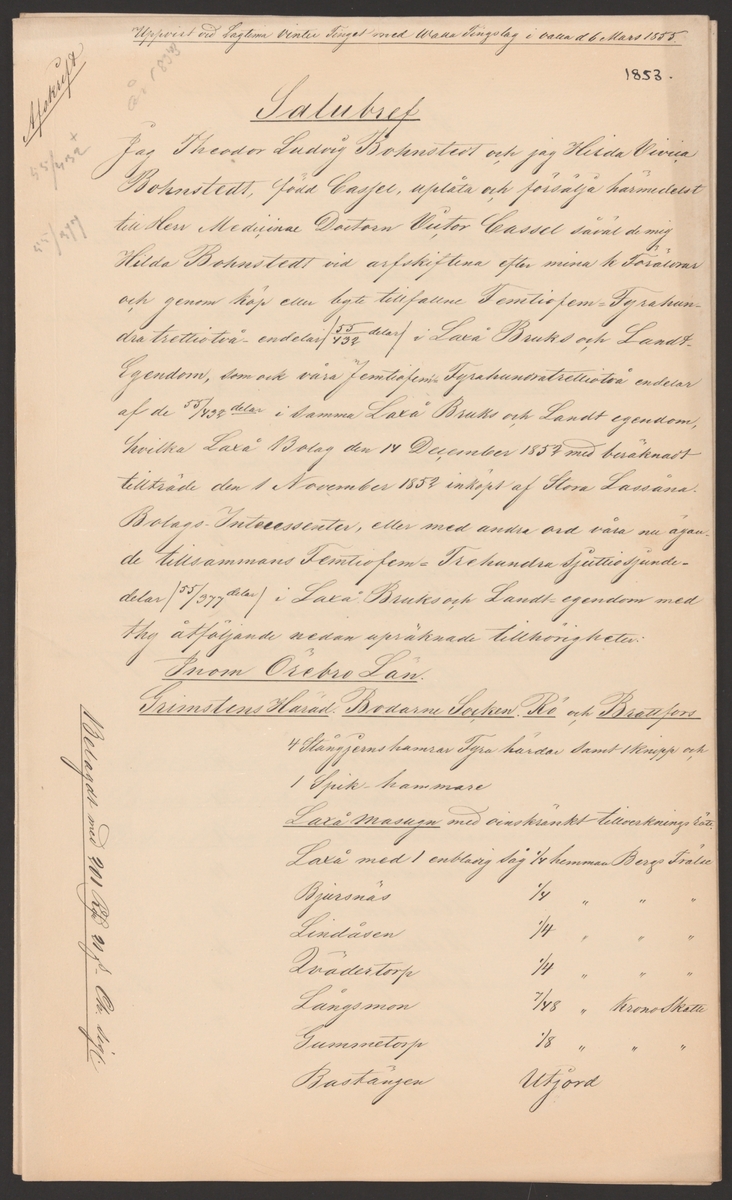 Uppvist vid Lagtima Vinter Tinget med Walla Tingslag i Walla d 6 Mars 1855
1853.
Afskrift
År 1853
55/432 +
55/377
Salubref
Jag Theodor Ludvig Bohnstedt och jag Hilda Vivica
Bohnstedt, född Cassel, uplåta och försälja härmedelst
till Herr Medicinæ Doctorn Victor Cassel såväl de mig
Hilda Bohnstedt vid arfskiftena efter mina k Föräldrar
och genom köp eller byte tillfallne Femtiofem=Fyrahun-
dratrettiotvå-endelar (55/432 delar) i Laxå Bruks och Landt-
Egendom, som ock våra Femtiofem= Fyrahundratrettiotvå endelar
af de 55/432 delar i samma Laxå Bruks och Landt egendom,
hvilka Laxå Bolag den 14 December 1852 med beräknadt
tillträde den 1 November 1852 inköpt af Stora Lassåna
Bolags-Intressenter, eller med andra ord våra nu ägan-
de tillsammans Femtiofem= Trehundra sjuttiosjunde-
delar (55/377 delar) i Laxå Bruks och Landt-egendom med
thy åtföljande nedan upräknade tillhörigheter:
Inom Örebro Län.
Grimstens Härad. Bodarne Socken. Rö och Brattfors
4 Stångjernshamrar Fyra härdar samt 1 knipp och
1 Spik-hammare
Laxå Masugn med oinskränkt tillverknings rätt.
Laxå med 1 enbladig såg 1/4 hemman Bergs Frälse
Bjursnäs 1/4 " " "
Lindåsen 1/4 " " "
Qvädertorp 1/4 " " "
Långsmon 7/48 " Krono Skatte
Gummetorp 1/8 " " "
Bastängen Utjord
Belagdt med